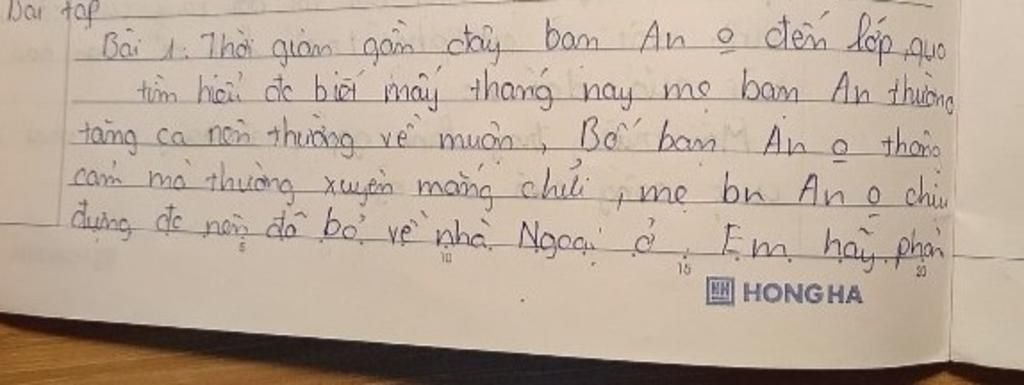 Bài tập
Bài 1: Thời gian gần đây bạn An o đến lớp, qua
tìm hiểu đc biết mấy tháng nay mẹ bạn An thường
tăng ca nên thường về muộn, Bố bạn An o thông
cảm mà thường xuyên mắng chửi, mẹ bn An o chịu
đựng đc nên đã bỏ về nhà Ngoại ở. Em hãy phân
5 10 15 20
HONG HA